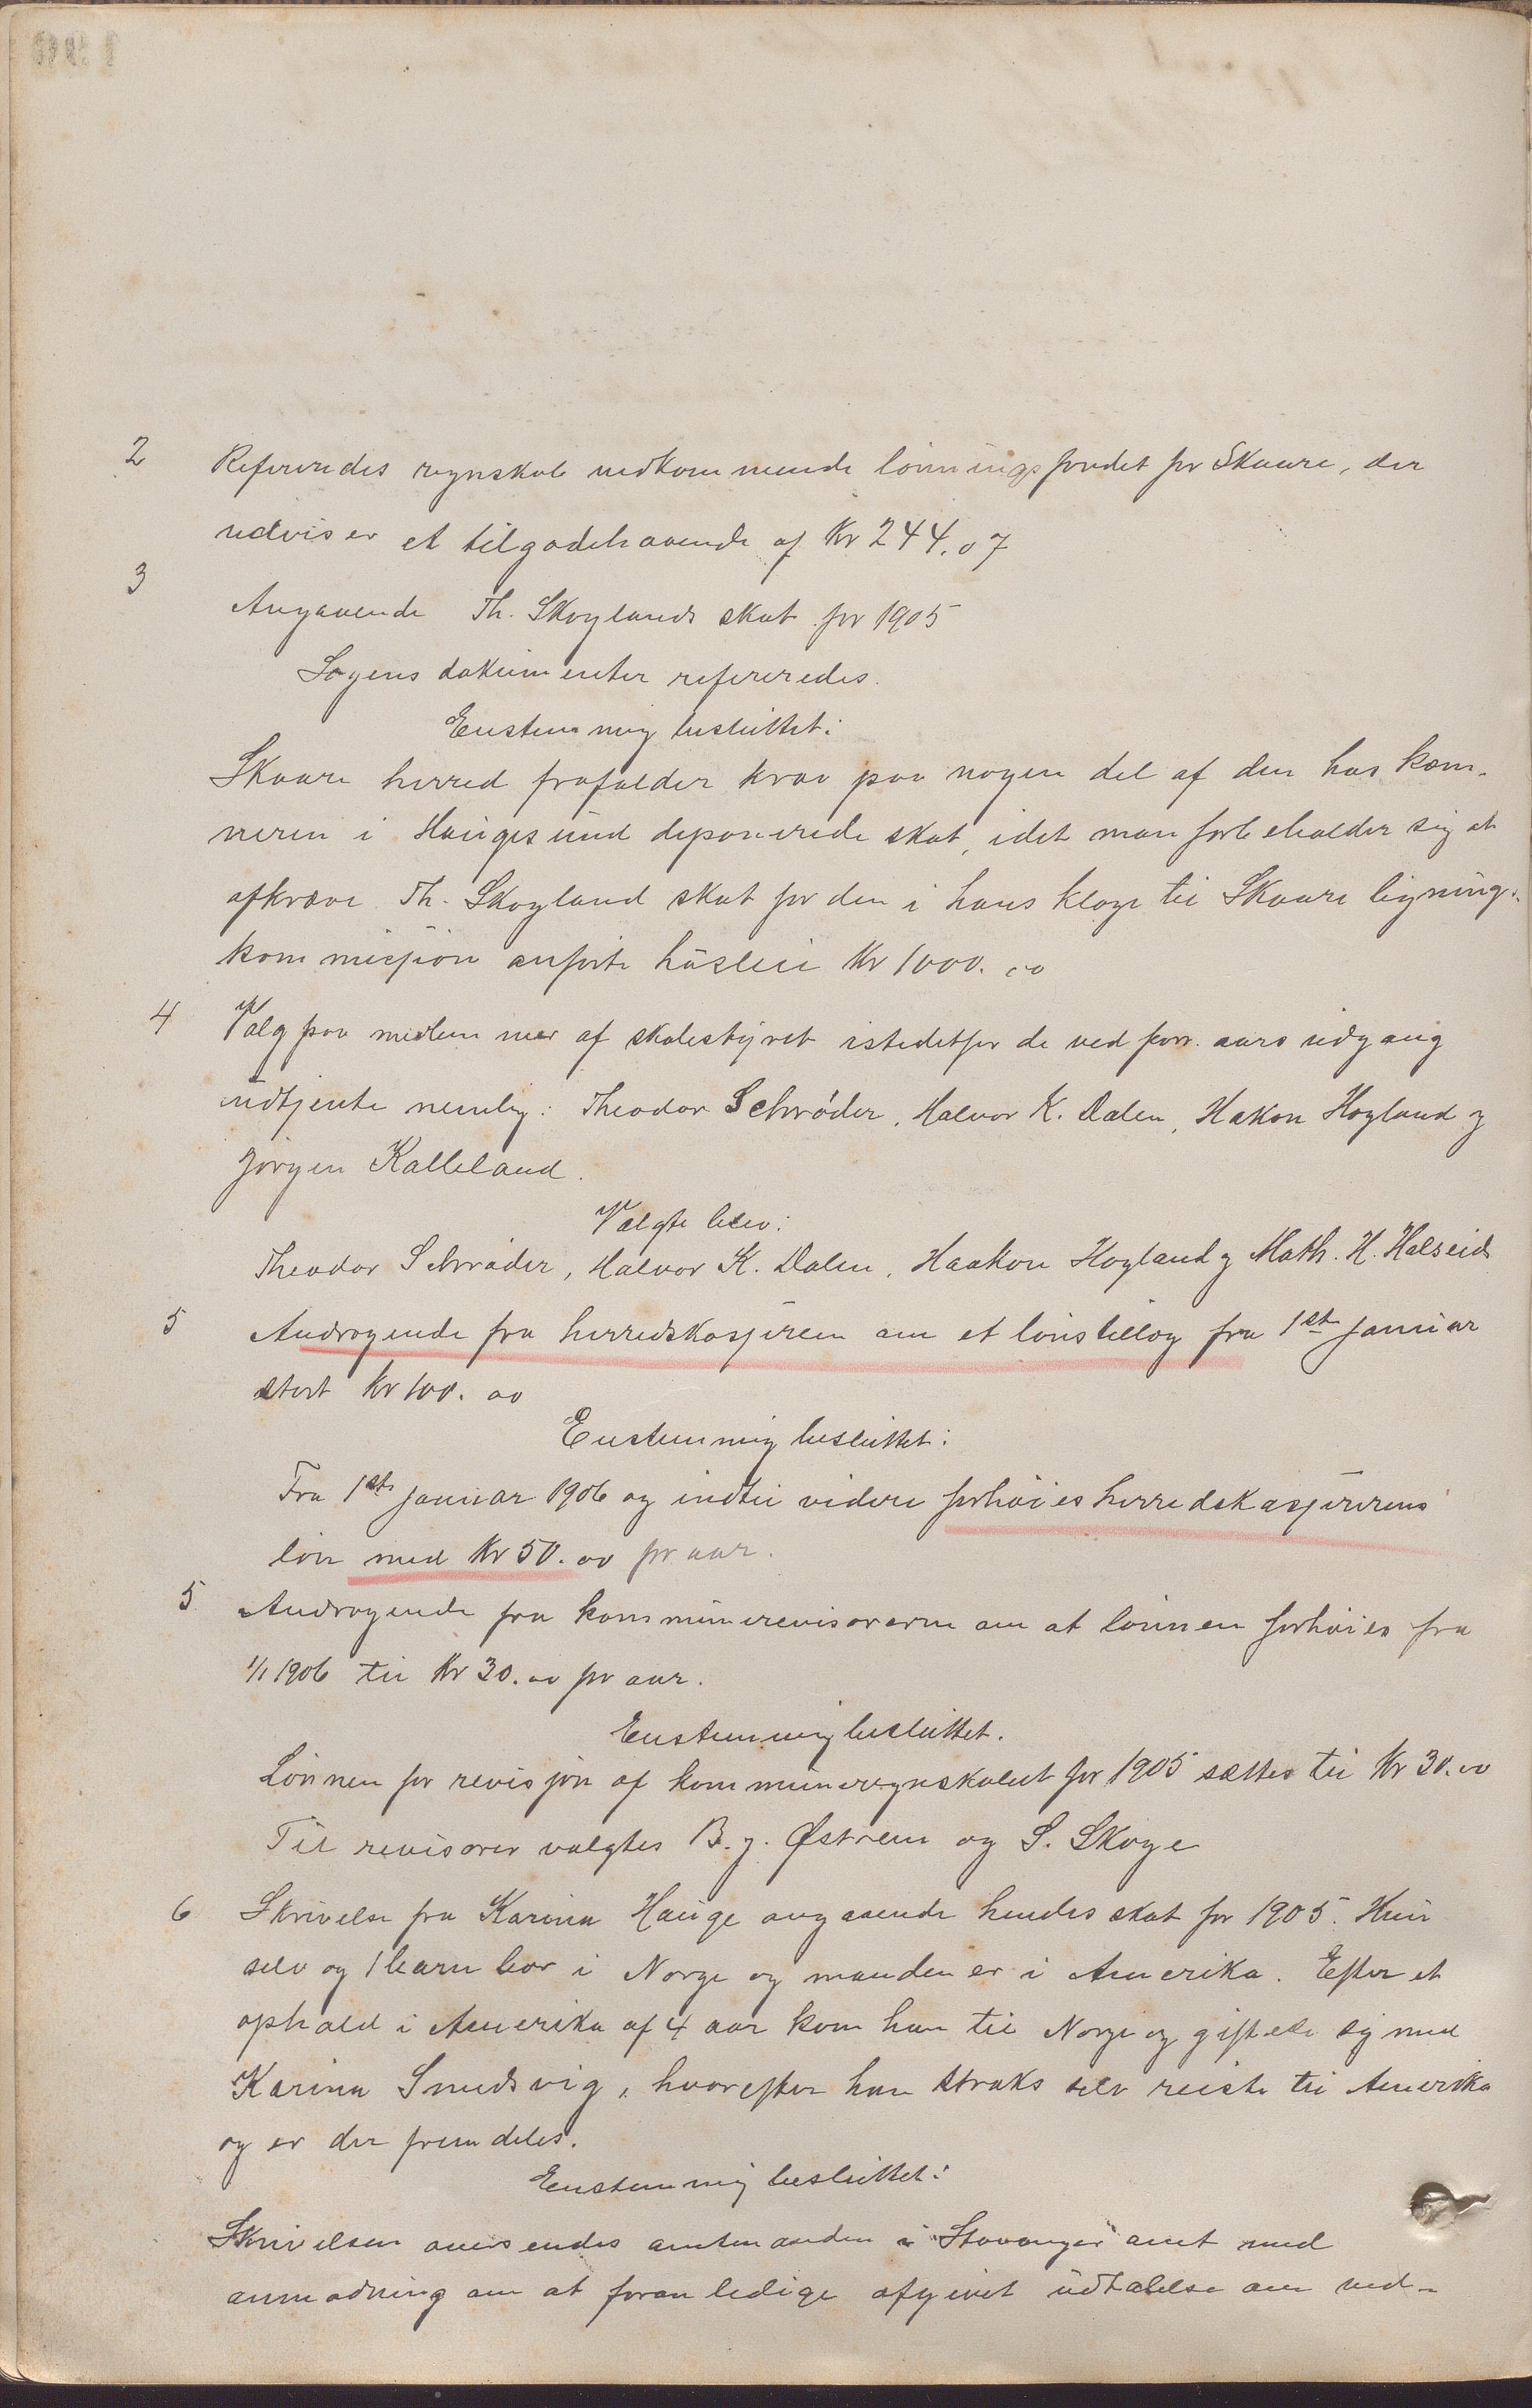 2 Refereredes regnskab vedkommende lønningsfondet for Skaare, der
udviser et tilgodehavende af Kr 244.07
3
Angaaende Th. Skoglands skat for 1905
Sagens dokumenter refereredes.
Enstemmig besluttet:
Skaare herred frafalder krav paa nogen del af den hos kæm-
neren i Haugesund deponerede skat, idet man forbeholder sig at
afkræve Th. Skogland skat for den i hans klage til Skaare lignings-
kommisjion anførte husleie Kr 1000.00
4 Valg paa medlemmer af skolestyret istedetfor de ved forr. aars udgang
udtjente nemlig: Theodor Schrøder, Halvor K. Dalen, Hakon Høgland og
Jørgen Kalleland.
Valgte blev:
Theodor Schrøder, Halvor K. Dalen, Haakon Høgland og Math. H. Halseid
5 Andragende fra herredskasjereren om et lønstillæg fra 1st januar
stort Kr 100.00
Enstemmig besluttet:
Fra 1st januar 1906 og indtil videre forhøies herredskasjererens
løn med Kr 50.00 pr aar.
5 Andragende fra kommunerevisorerne om at lønnen forhøies fra
1/1 1906 til Kr 30.00 pr aar.
Enstemmig besluttet.
Lønnen for revisjon af kommuneregnskabet for 1905 sættes til Kr 30.00
Til revisorer valgtes B. J. Østrem og S. Skoge
6 Skrivelse fra Karina Hauge angaaende hendes skat for 1905. Hun
selv og 1 barn bor i Norge og manden er i Amerika. Efter et
ophold i Amerika af 4 aar kom han til Norge og giftede sig med
Karina Smedsvig, hvorefter han straks selv reiste til Amerika
og er der fremdeles.
Enstemmig besluttet:
Skrivelsen oversendes amtmanden i Stavanger amt med
anmodning om at foranledige afgivet udtalelse om ved-